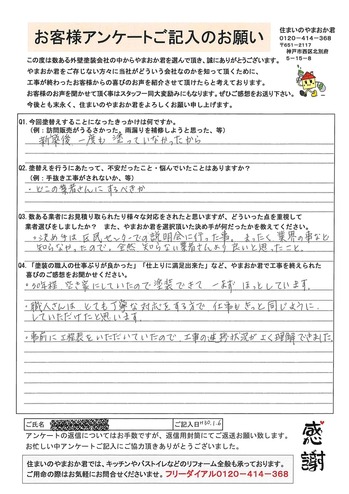 お客様アンケートご記入のお願い
住まいのやまおか君
0120-414-368
〒651-2117
神戸市西区北別府
5-15-8
この度は数ある外壁塗装会社の中からやまおか君を選んで頂き、誠にありがとうございます。
やまおか君をご存じない方々に当社がどういう会社なのかを知って頂くために、
工事が終わったお客様からの喜びのお声を紹介させて頂けたらと考えております。
お客様のお声を聞かせて頂く事はスタッフ一同大変励みにもなります。ぜひご感想をお送り下さい。
今後とも末永く、住まいのやまおか君をよろしくお願い申し上げます。
Q1.今回塗替えすることになったきっかけは何ですか。
(例:訪問販売がうるさかった。雨漏りを補修しようと思った、等)
新築後一度も塗っていなかったから
Q2.塗替えを行うにあたって、不安だったこと・悩んでいたことはありますか?
(例:手抜き工事がされないか、等)
・どこの業者さんにすべきか
Q3.数ある業者にお見積り取られたり様々な対応をされたと思いますが、どういった点を重視して
業者選びをしましたか? また、やまおか君を選択頂いた決め手が何だったかを教えてください。
・決め手は区民センターでの説明会に行った事。まったく業界の事など
知らなかったので、全然知らない業者さんより良いと思ったこと。
Q4.「塗装の職人の仕事ぶりが良かった」「仕上りに満足出来た」など、やまおか君で工事を終られた
喜びのご感想をお聞かせください。
・20年程空き家にしていたので塗装できて一まずほっとしています。
・職人さんはとても丁寧な対応をする方で仕事もきっと同じように
していただけたと思います。
・事前に工程表をいただいていたので、工事の進捗状況がよく理解できました。
ご氏名
ご記入日 H30.1.6
アンケートの返信についてはお手数ですが、返信用封筒にてご返送お願い致します。
お忙しい中アンケートにご協力頂きありがとうございました。
感謝
住まいのやまおか君では、キッチンやバストイレなどのリフォーム全般も承っております。
ご用命の際はお気軽にお問合せくださいませ。フリーダイアル0120-414-368